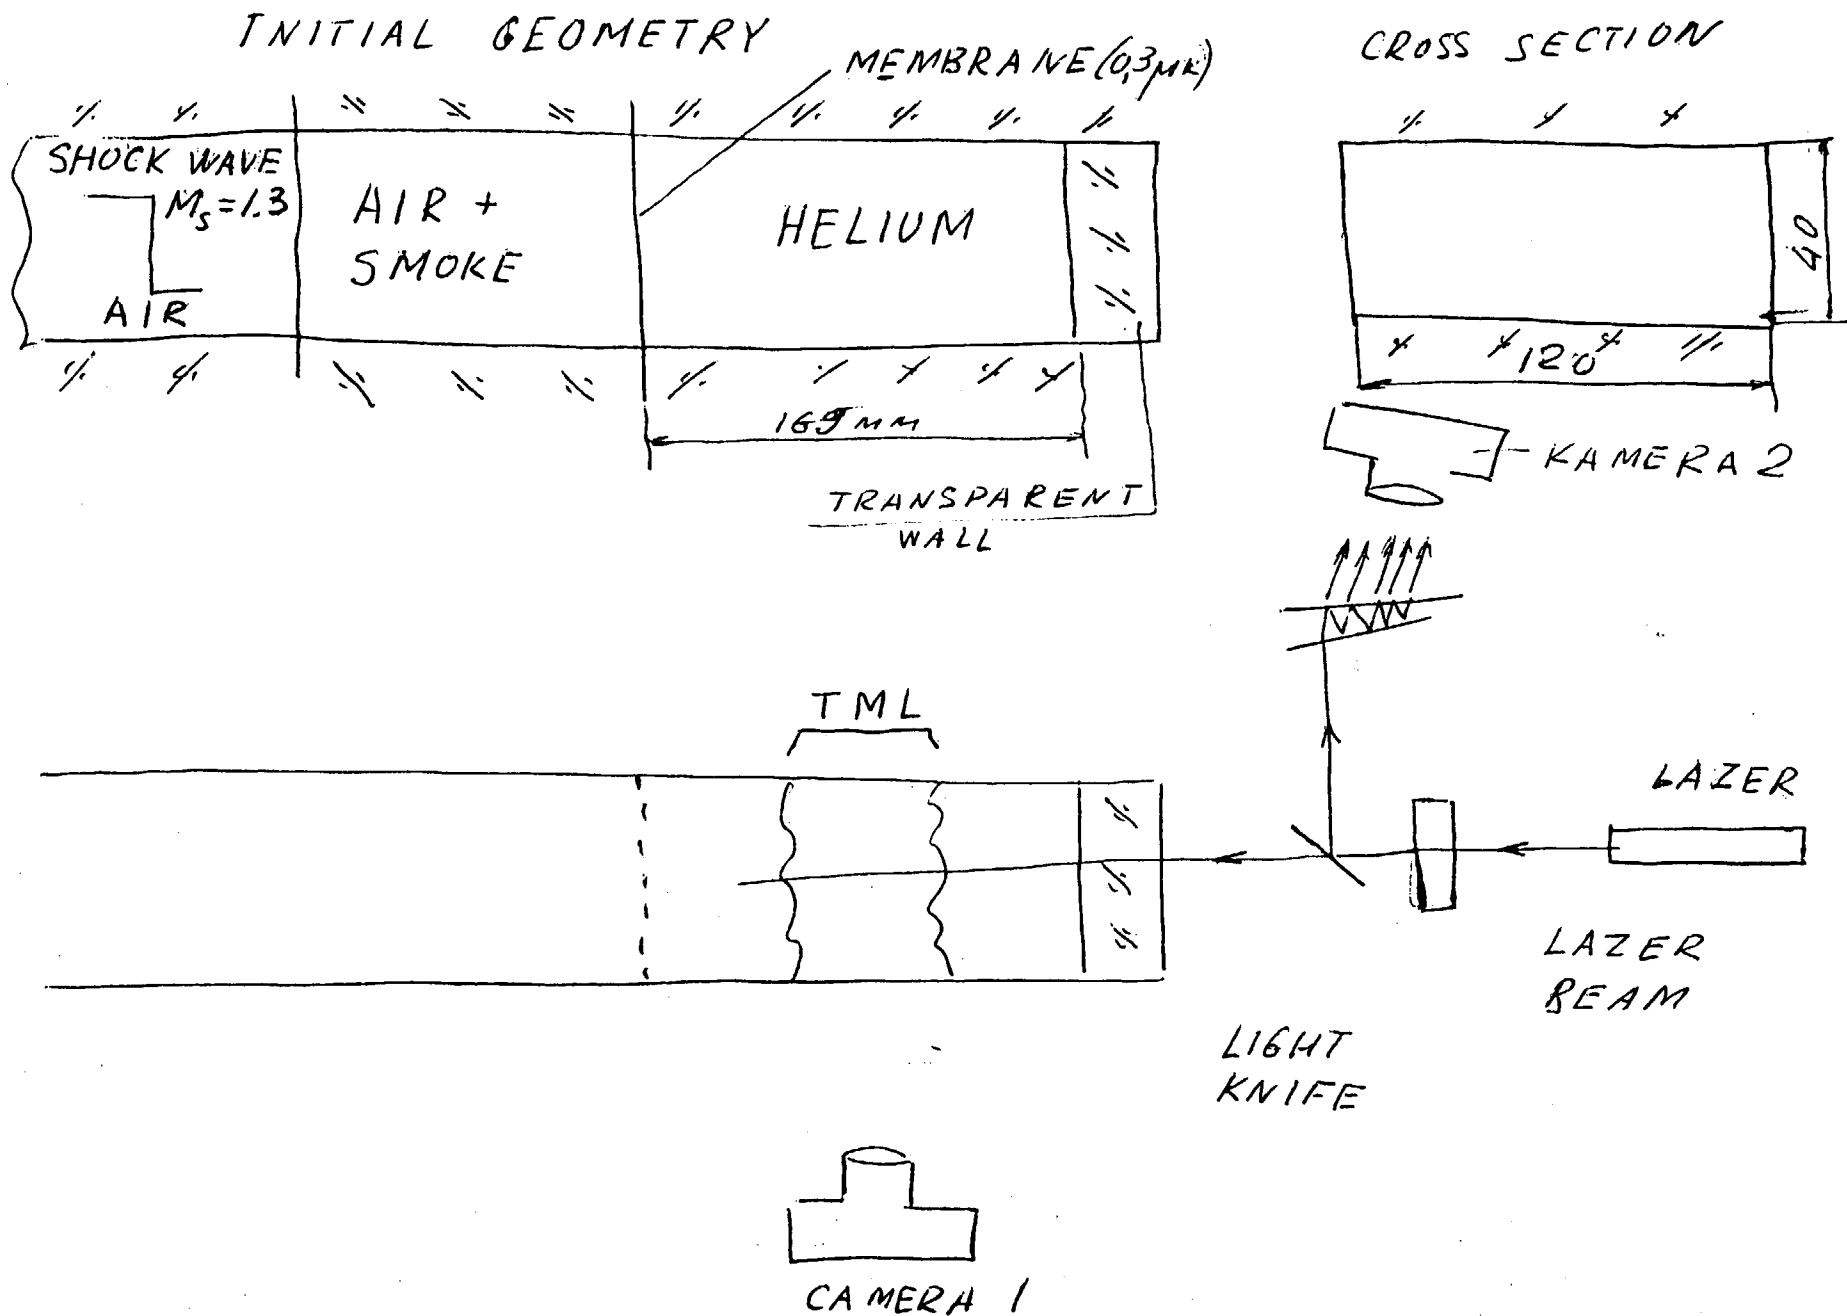 INITIAL GEOMETRY
MEMBRANE (0,3 μк)
CROSS SECTION
SHOCK WAVE
Ms=1.3
AIR
AIR +
SMOKE
HELIUM
40
120
169 мм
TRANSPARENT
WALL
KAMERA 2
TML
LAZER
LAZER
BEAM
LIGHT
KNIFE
CAMERA 1